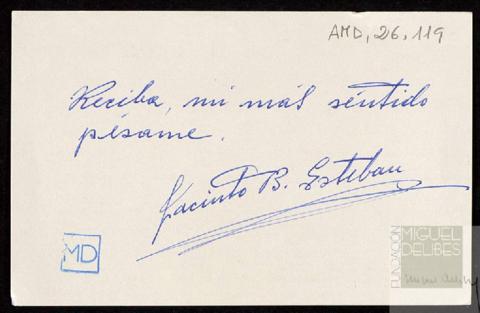 AMD, 26, 119
Reciba, mi más séntido
pésame.
Jacinto B. Esteban
MD
FUNDACIÓN
MIGUEL
DELIBES